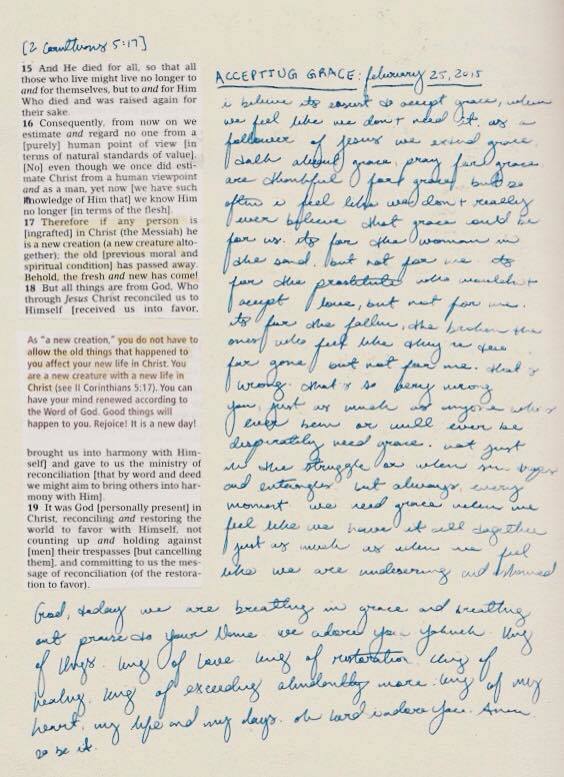 [2 Corinthians 5:17]
15 And He died for all, so that all
those who live might live no longer to
and for themselves, but to and for Him
Who died and was raised again for
their sake.
16 Consequently, from now on we
estimate and regard no one from a
[purely] human point of view [in
terms of natural standards of value].
[No] even though we once did esti-
mate Christ from a human viewpoint
and as a man, yet now [we have such
knowledge of Him that] we know Him
no longer [in terms of the flesh].
17 Therefore if any person is
[ingrafted] in Christ (the Messiah) he
is a new creation (a new creature alto-
gether); the old [previous moral and
spiritual condition] has passed away.
Behold, the fresh and new has come!
18 But all things are from God, Who
through Jesus Christ reconciled us to
Himself [received us into favor,
As "a new creation," you do not have to
allow the old things that happened to
you affect your new life in Christ. You
are a new creature with a new life in
Christ (see II Corinthians 5:17). You can
have your mind renewed according to
the Word of God. Good things will
happen to you. Rejoice! It is a new day!
brought us into harmony with Him-
self] and gave to us the ministry of
reconciliation [that by word and deed
we might aim to bring others into har-
mony with Him].
19 It was God [personally present] in
Christ, reconciling and restoring the
world to favor with Himself, not
counting up and holding against
[men] their trespasses [but cancelling
them], and committing to us the mes-
sage of reconciliation (of the restora-
tion to favor).
ACCEPTING GRACE: february 25, 2015
i believe its easiest to accept grace, when
we feel like we don't need it. as a
follower of Jesus we extend grace,
talk about grace, pray for grace
are thankful for grace, but so
often i feel like we don't really
ever believe that grace could be
for us. its for the woman in
the sand, but not for me. its
for the prostitute who wouldn't
accept love, but not for me.
its for the fallen, the broken the
ones who feel like they're too
far gone but not for me. that's
wrong. that's so very wrong
you, just as much as anyone who's
ever been or will ever be
desperately need grace. not just
in the struggle or when sin
and entangles but always, every
moment. we need grace when we
feel like we have it all together
just as much as when we feel
like we are undeserving and ashamed
God, today we are breathing in grace and breathing
out praise to your name. we adore you Yahweh. King
of Kings. king of love. king of restoration. king of
healing. king of exceeding abundantly more. king of my
heart, my life and my days. oh lord i adore you. Amen.
so be it.